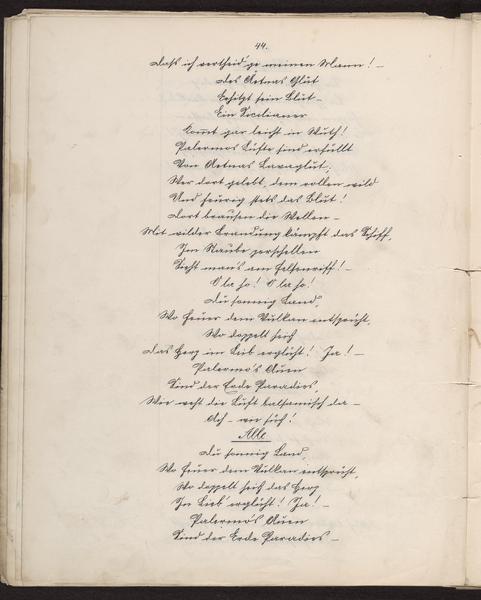 44.
Daß ich vertheid'ge meinen Mann! –
Des Aetnas Glut
Erhitzt sein Blut –
Ein Sicilianer
Kom̅t gar leicht in Wuth!
Palermos Lüfte sind erfüllt
Von Aetnas Lavaglut;
Wer dort gelebt, dem rollen wild
Und feurig stets das Blut!
Dort brausen die Wellen –
Mit wilder Brandung kämpft das Schiff,
Im Staube zerschellen
Sieht man's am Felsenriff! –
O la so! O la so!
Du sonnig Land,
Wo Feuer dem Vulkan entsprüht,
Wo doppelt heiß
Das Herz im Leib erglüht! Ja! –
Palermo's Auen
Sind der Erde Paradies,
Wie weht die Luft balsamisch da –
Ach – wie süß!
Alle
Du sonnig Land,
Wo Feuer dem Vulkan entsprüht,
Wo doppelt heiß das Herz
In Lieb' erglüht! Ja! –
Palermo's Auen
Sind der Erde Paradies –